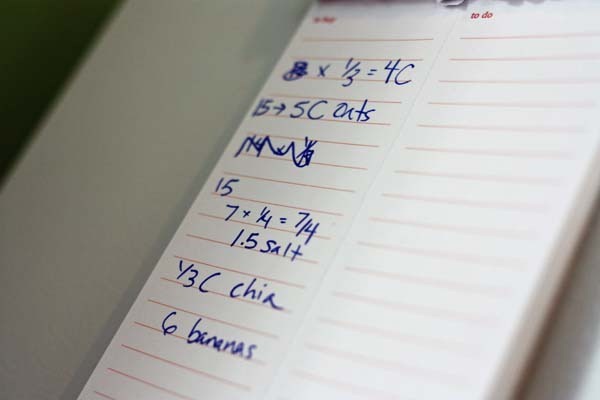 to buy
to do
x 1/3 = 4C
15 → 5C oats
15
7 x 1/4 = 7/4
1.5 salt
1/3 C chia
6 bananas